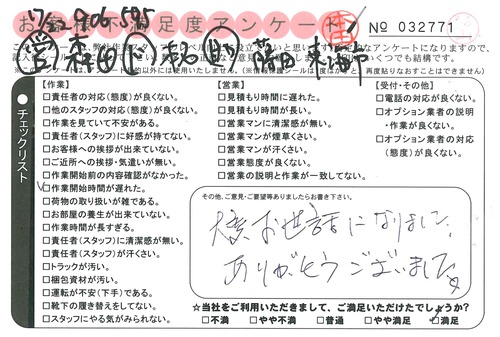 お客様不満足度アンケート
No 032771
チェックリスト
【作業】
□責任者の対応(態度)が良くない。
□他のスタッフの対応(態度)が良くない。
□作業を見ていて不安がある。
□責任者(スタッフ)に好感が持てない。
□お客様への挨拶が出来ていない。
□ご近所への挨拶・気遣いが無い。
□作業開始前の内容確認がなかった。
□作業開始時間が遅れた。
□荷物の取り扱いが雑である。
□お部屋の養生が出来ていない。
□作業時間が長すぎる。
□責任者(スタッフ)に清潔感が無い。
□責任者(スタッフ)が汗くさい。
□トラックが汚い。
□梱包資材が汚い。
□運転が不安(下手)である。
□靴下の履き替えをしてない。
□スタッフにやる気がみられない。
【営業】
□見積もり時間に遅れた。
□見積もり時間が長い。
□営業マンに清潔感が無い。
□営業マンが煙草くさい。
□営業マンが汗くさい。
□営業態度が良くない。
□営業の説明と作業が一致してない。
【受付・その他】
□電話の対応が良くない。
□オプション業者の説明
・作業が良くない。
□オプション業者の対応
(態度)が良くない。
その他、ご意見・ご要望等ありましたらお書き下さい。
大変お世話になりました。
ありがとうございました。
☆当社をご利用いただきまして、ご満足いただけたでしょうか?
□不満 □やや不満 □普通 □やや満足 □満足